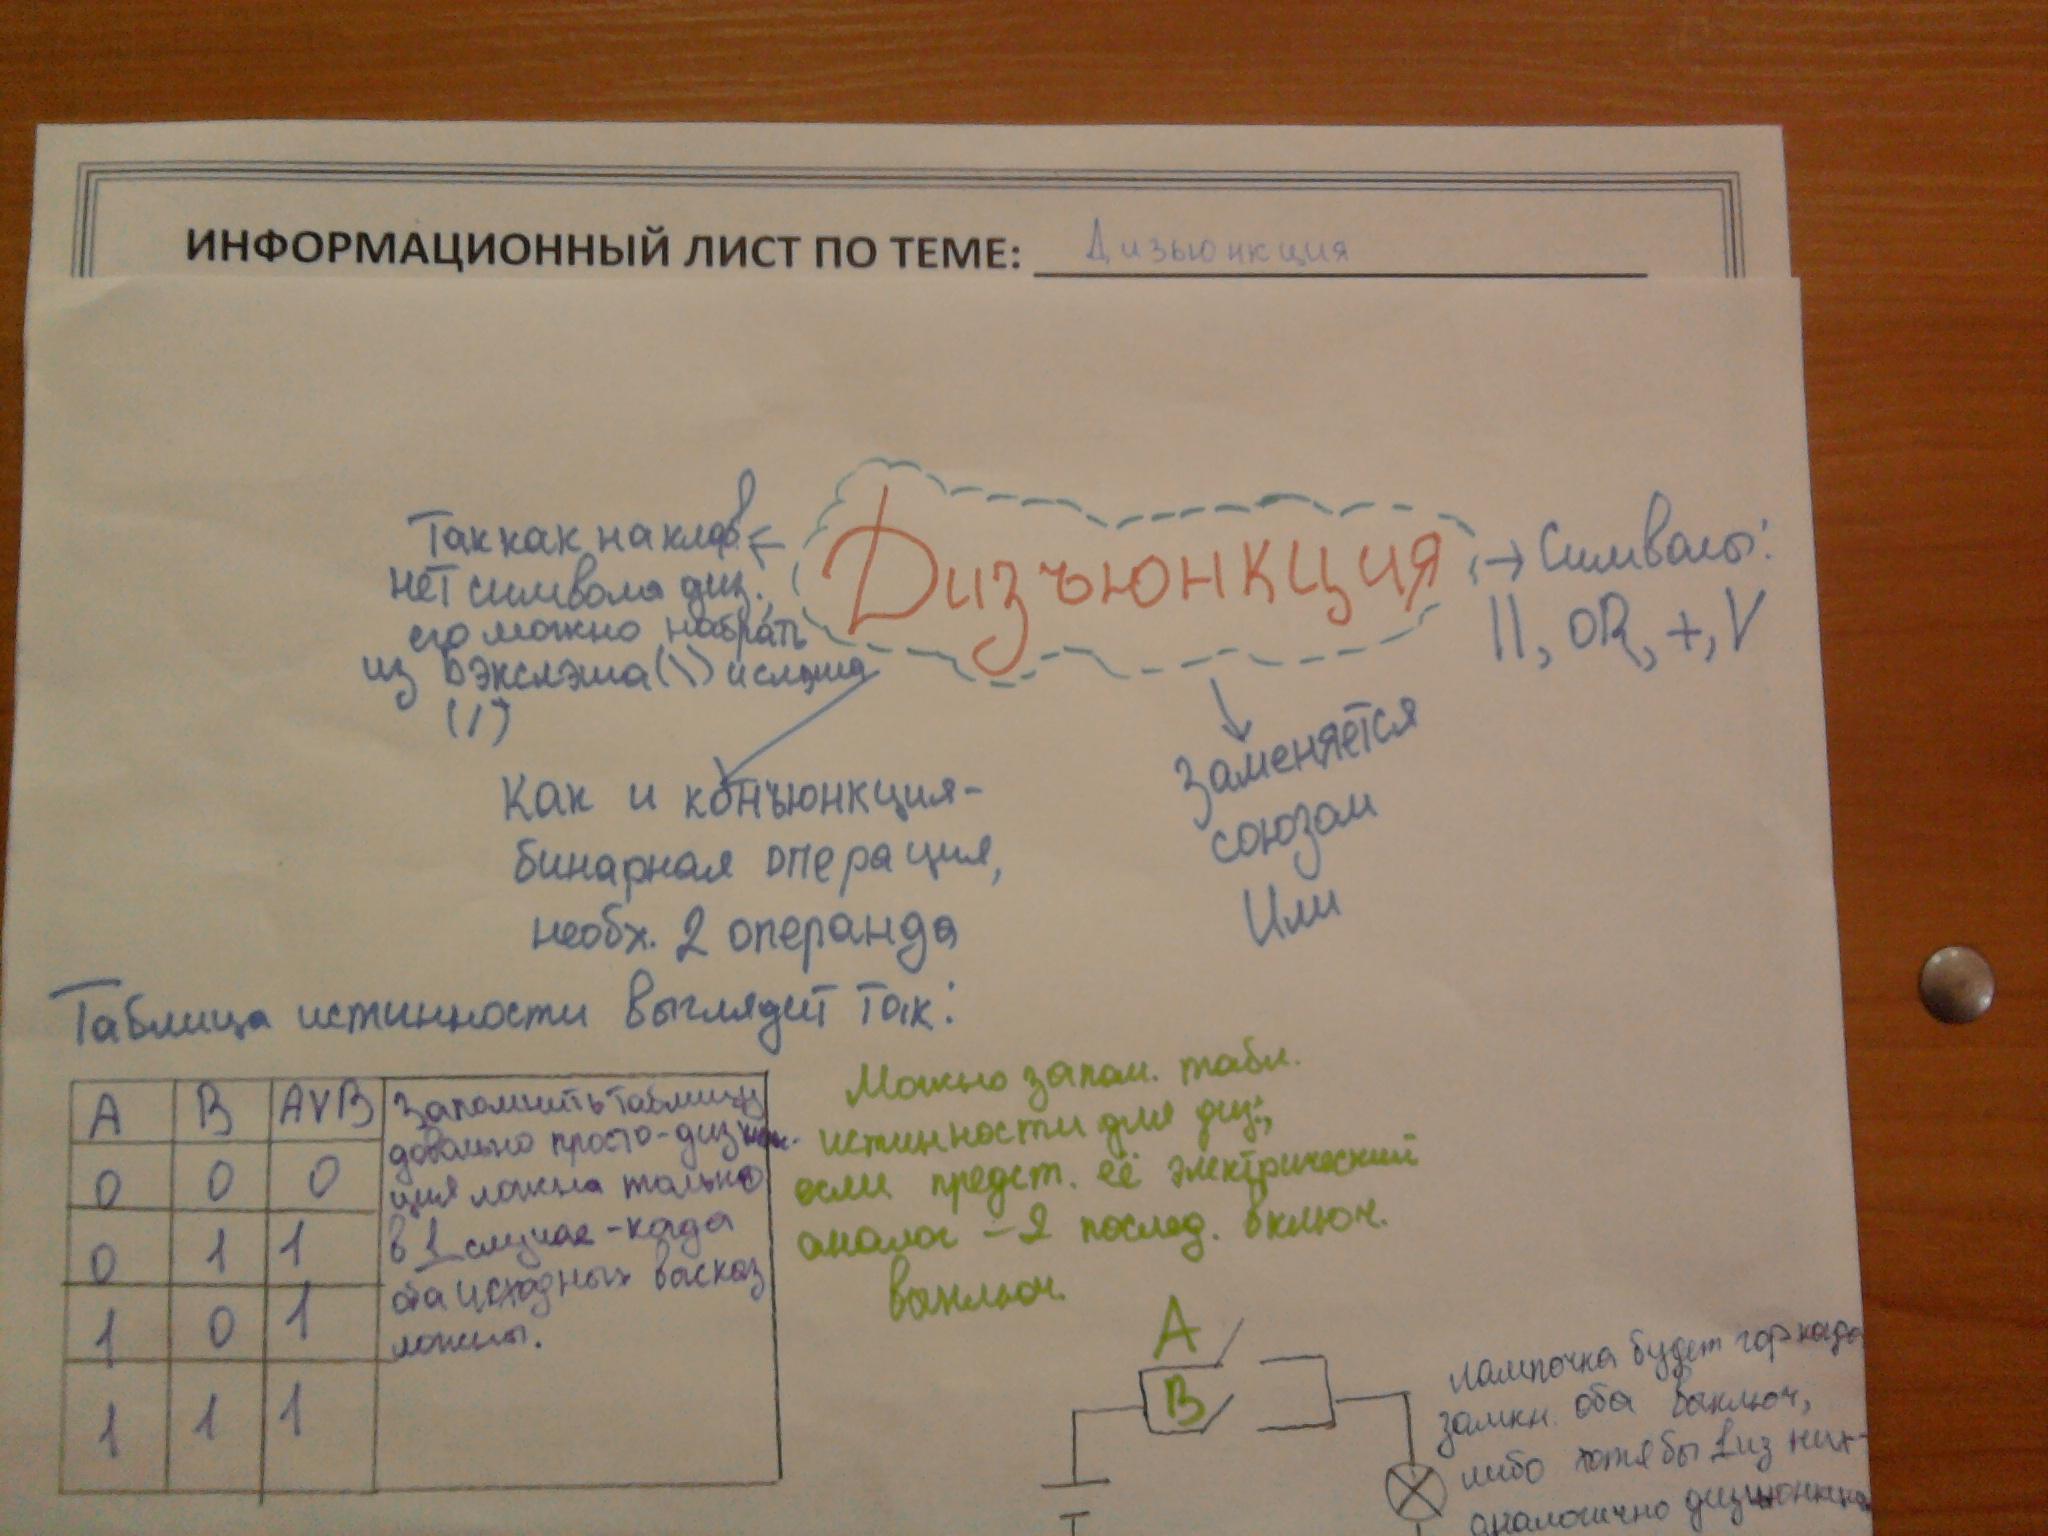 ИНФОРМАЦИОННЫЙ ЛИСТ ПО ТЕМЕ: Дизъюнкция
Дизъюнкция
Так как на клав.
нет символа диз.,
его можно набрать
из бэкслэша (\) и слэша
(/)
Символы:
||, OR, +, V
Как и конъюнкция-
бинарная операция,
необх. 2 операнда
Заменяется
союзом
Или
Таблица истинности выглядит так:
A B AVB
0 0 0
0 1 1
1 0 1
1 1 1
Запомнить таблицу
довольно просто-дизъюнк-
ция ложна только
в 1 случае - когда
оба исходных выcказ
ложны.
Можно запом. табл.
истинности для диз.,
если предст. её электрический
аналог - 2 послед. включ.
выключ.
A
B
Лампочка будет гор когда
замкн. оба выключ,
либо хотя бы 1 из них-
аналогично дизъюнкция